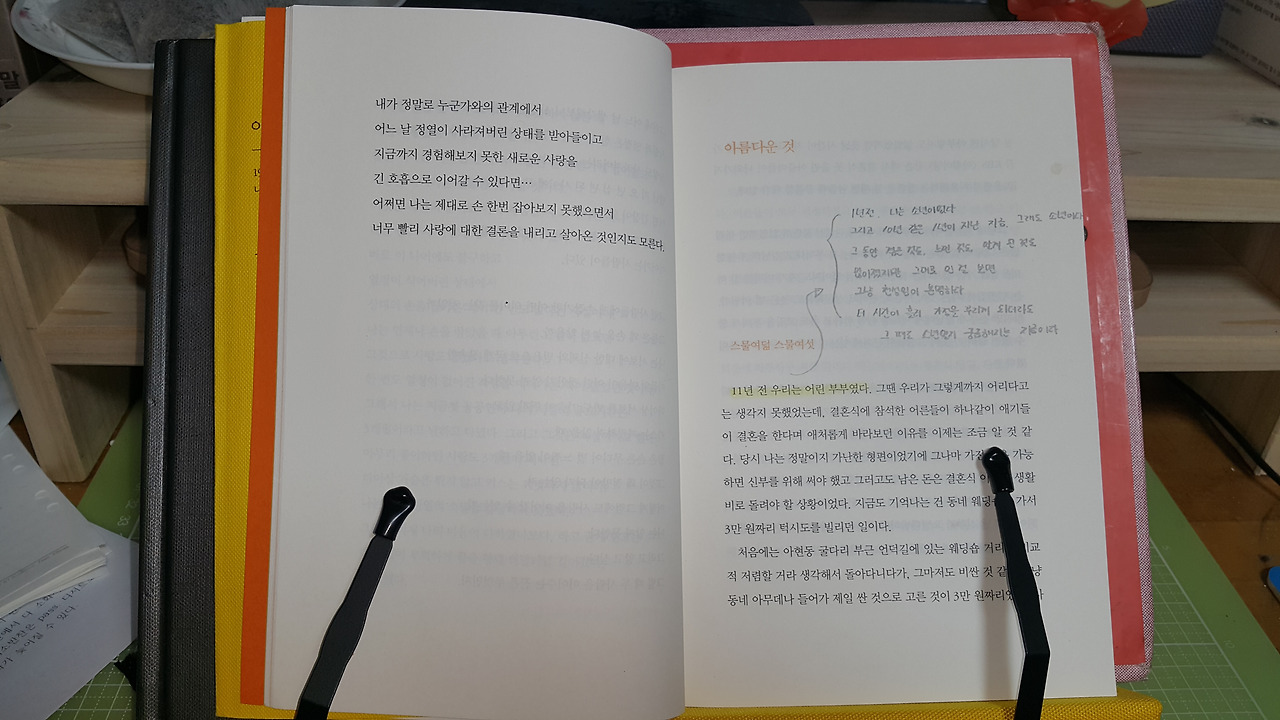 내가 정말로 누군가와의 관계에서
어느 날 정열이 사라져버린 상태를 받아들이고
지금까지 경험해보지 못한 새로운 사랑을
긴 호흡으로 이어갈 수 있다면…
어쩌면 나는 제대로 손 한번 잡아보지 못했으면서
너무 빨리 사랑에 대한 결론을 내리고 살아온 것인지도 모른다.
아름다운 것
1년전, 나는 소년이었다
그리고 10년 같은 1년이 지난 지금, 그래도 소년이다
그 동안 적은 것도, 느낀 것도, 알게 된 것도
없어졌지만 그대로 인 걸 보면
그냥 한성인이
더 시간이 흘러 가정을 꾸리게 되더라도
그 때도 소년일지 궁금해지는 지금이다
스물여덟 스물여섯
11년 전 우리는 어린 부부였다. 그땐 우리가 그렇게까지 어리다고
는 생각지 못했었는데, 결혼식에 참석한 어른들이 하나같이 얘기들
이 결혼을 한다며 애처롭게 바라보던 이유를 이제는 조금 알 것 같
다. 당시 나는 정말이지 가난한 형편이었기에 그나마 가진 가능
하면 신부를 위해 써야 했고 그러고도 남은 돈은 결혼식 생활
비로 돌려야 할 상황이었다. 지금도 기억나는 건 동네 웨딩 가서
3만 원짜리 턱시도를 빌리던 일이다.
처음에는 아현동 굴다리 부근 언덕길에 있는 웨딩숍 거리 비교
적 저렴할 거라 생각해서 돌아다니다가, 그마저도 비싼 것 같
동네 아무데나 들어가 제일 싼 것으로 고른 것이 3만 원짜리
말